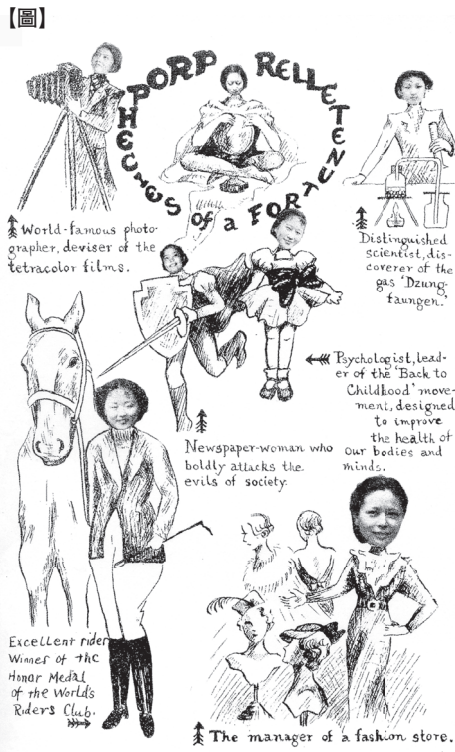 【圖】
PROPHECIES of a FORTUNETELLER
World-famous photo-
grapher, deviser of the
tetracolor films.
Distinguished
scientist, dis-
coverer of the
gas 'Dzung-
taungen.'
Psychologist, lead-
er of the 'Back to
Childhood' move-
ment, designed
to improve
the health of
our bodies and
minds.
Newspaper-woman who
boldly attacks the
evils of society.
Excellent rider
Winner of the
Honor Medal
of the World's
Riders Club.
The manager of a fashion store.